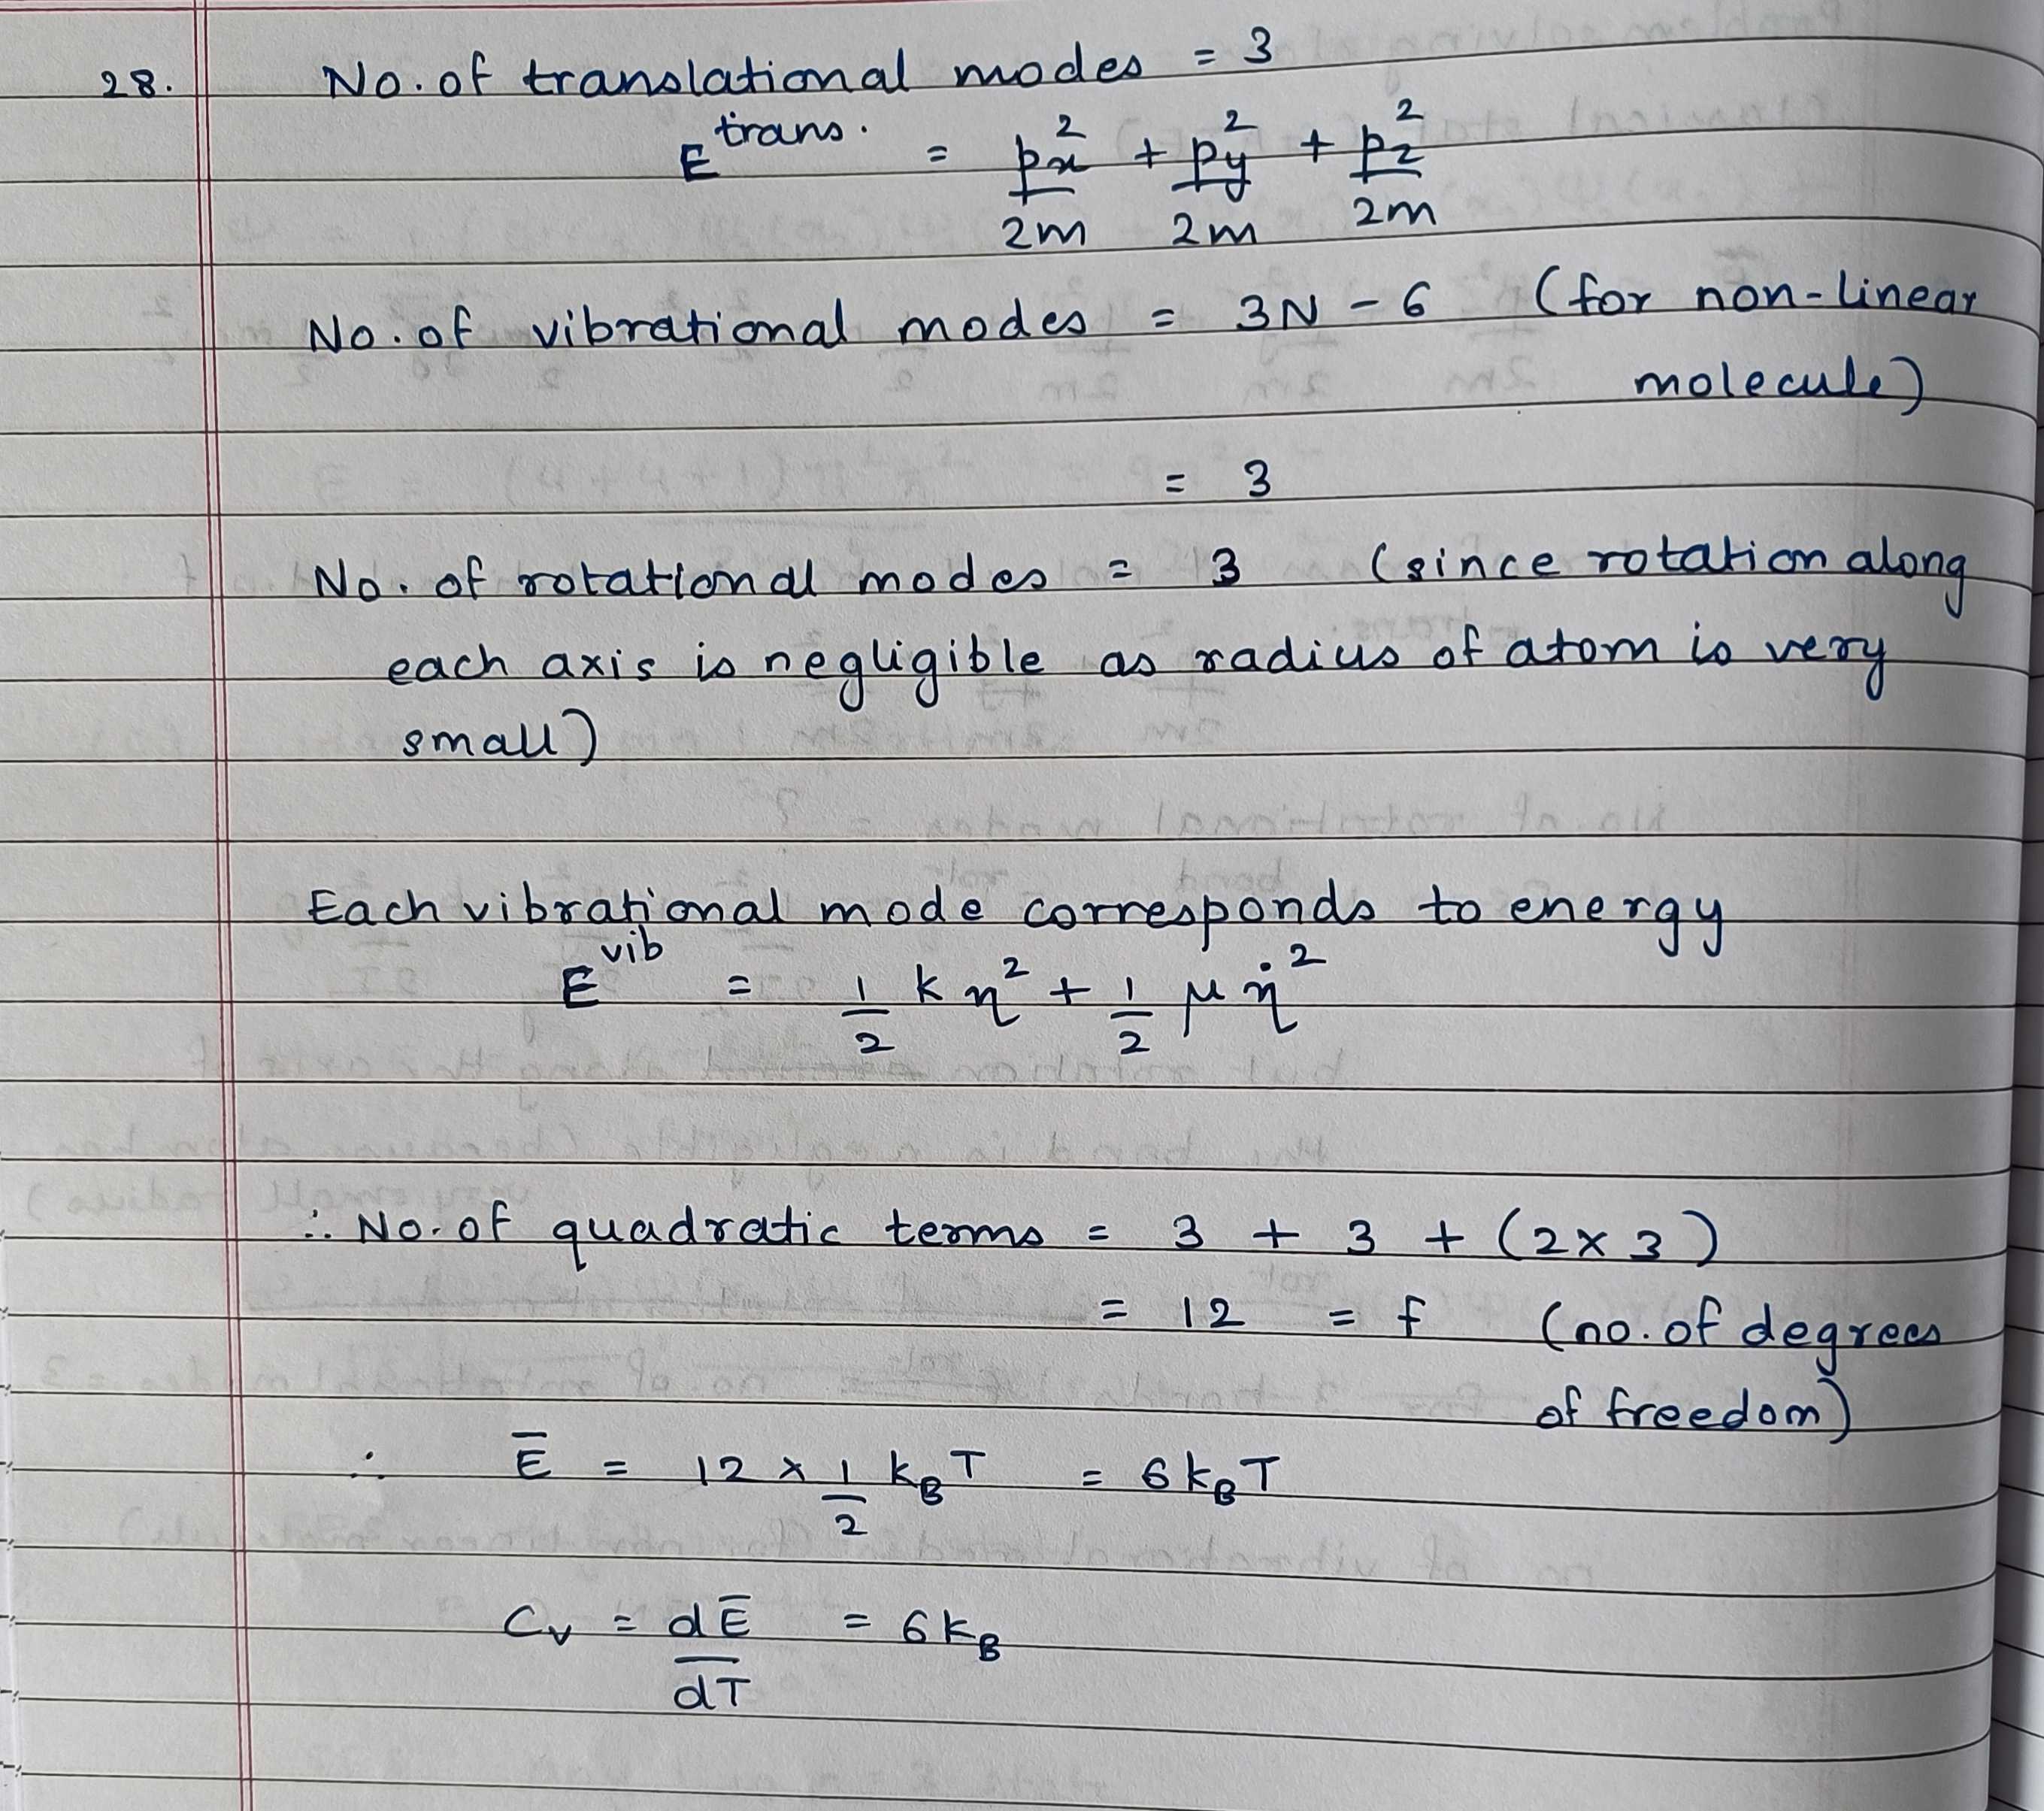 28. No. of translational modes = 3
E^trans. = px²/2m + py²/2m + pz²/2m
No. of vibrational modes = 3N - 6 (for non-linear
molecule)
= 3
No. of rotational modes = 3 (since rotation along
each axis is negligible as radius of atom is very
small)
Each vibrational mode corresponds to energy
E^vib = 1/2 k η² + 1/2 μ η̇²
∴ No. of quadratic terms = 3 + 3 + (2 x 3)
= 12 = f (no. of degrees
of freedom)
∴ E̅ = 12 x 1/2 k_B T = 6 k_B T
C_v = dE̅/dT = 6 k_B